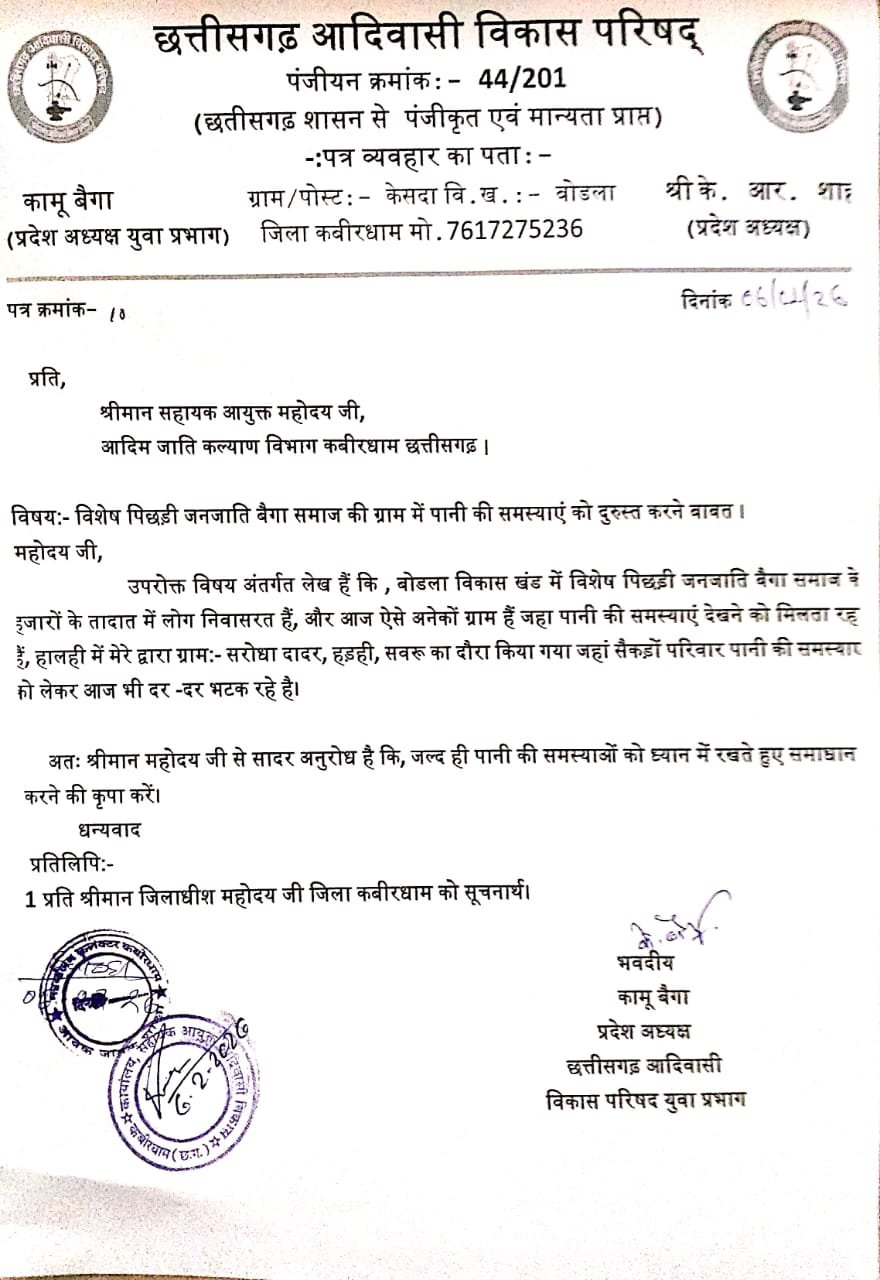 छत्तीसगढ़ आदिवासी विकास परिषद्
पंजीयन क्रमांक:- 44/201
(छतीसगढ़ शासन से पंजीकृत एवं मान्यता प्राप्त)
-:पत्र व्यवहार का पता:-
कामू बैगा
(प्रदेश अध्यक्ष युवा प्रभाग)
ग्राम/पोस्ट:- केसदा वि.ख.:- वोडला
जिला कबीरधाम मो.7617275236
श्री के. आर. शाह
(प्रदेश अध्यक्ष)
पत्र क्रमांक-
दिनांक
प्रति,
श्रीमान सहायक आयुक्त महोदय जी,
आदिम जाति कल्याण विभाग कबीरधाम छत्तीसगढ़।
विषय:- विशेष पिछड़ी जनजाति बैगा समाज की ग्राम में पानी की समस्याएं को दुरुस्त करने वावत।
महोदय जी,
उपरोक्त विषय अंतर्गत लेख हैं कि , वोडला विकास खंड में विशेष पिछड़ी जनजाति बैगा समाज के
हजारों के तादात में लोग निवासरत हैं, और आज ऐसे अनेकों ग्राम हैं जहा पानी की समस्याएं देखने को मिलता रह
हैं, हालही में मेरे द्वारा ग्राम:- सरोधा दादर, हड़ही, सवरू का दौरा किया गया जहां सैकड़ों परिवार पानी की समस्याए
को लेकर आज भी दर -दर भटक रहे है।
अतः श्रीमान महोदय जी से सादर अनुरोध है कि, जल्द ही पानी की समस्याओं को ध्यान में रखते हुए समाधान
करने की कृपा करें।
धन्यवाद
प्रतिलिपि:-
1 प्रति श्रीमान जिलाधीश महोदय जी जिला कबीरधाम को सूचनार्थ।
भवदीय
कामू बैगा
प्रदेश अध्यक्ष
छत्तीसगढ़ आदिवासी
विकास परिषद युवा प्रभाग
कार्यालय, सहायक आयुक्त आदिवासी विकास
कबीरधाम (छ.ग.)
6-2-2026